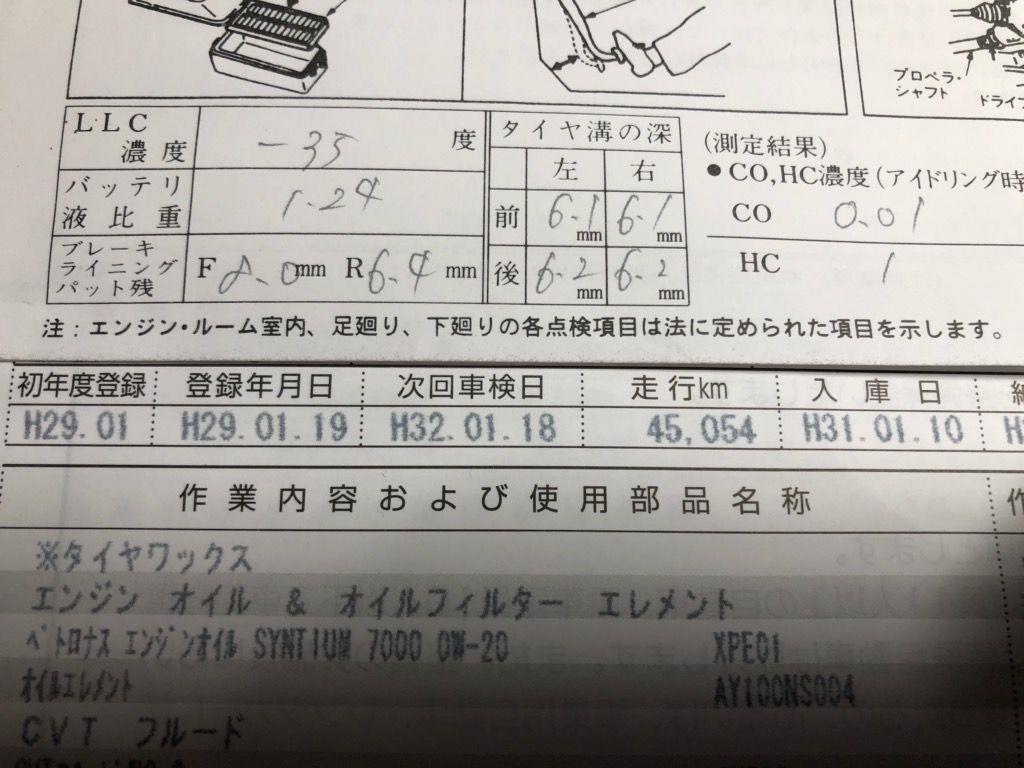 プロペラ・
シャフト
ドライブ
LLC
濃度
-35 度
バッテリ
液比重
1.24
ブレーキ
ライニング
パット残
F 8.0mm R6.4 mm
タイヤ溝の深
左 右
前 6.1mm 6.1mm
後 6.2mm 6.2mm
(測定結果)
●CO,HC濃度(アイドリング時
CO 0.01
HC 1
注:エンジン・ルーム室内、足廻り、下廻りの各点検項目は法に定められた項目を示します。
初年度登録 登録年月日 次回車検日 走行km 入庫日
H29.01 H29.01.19 H32.01.18 45,054 H31.01.10
作業内容および使用部品名称 作
※タイヤワックス
エンジン オイル & オイルフィルター エレメント
ペトロナス エンジンオイル SYNTIUM 7000 0W-20 XPE01
オイルエレメント AY100NS004
CVT フルード